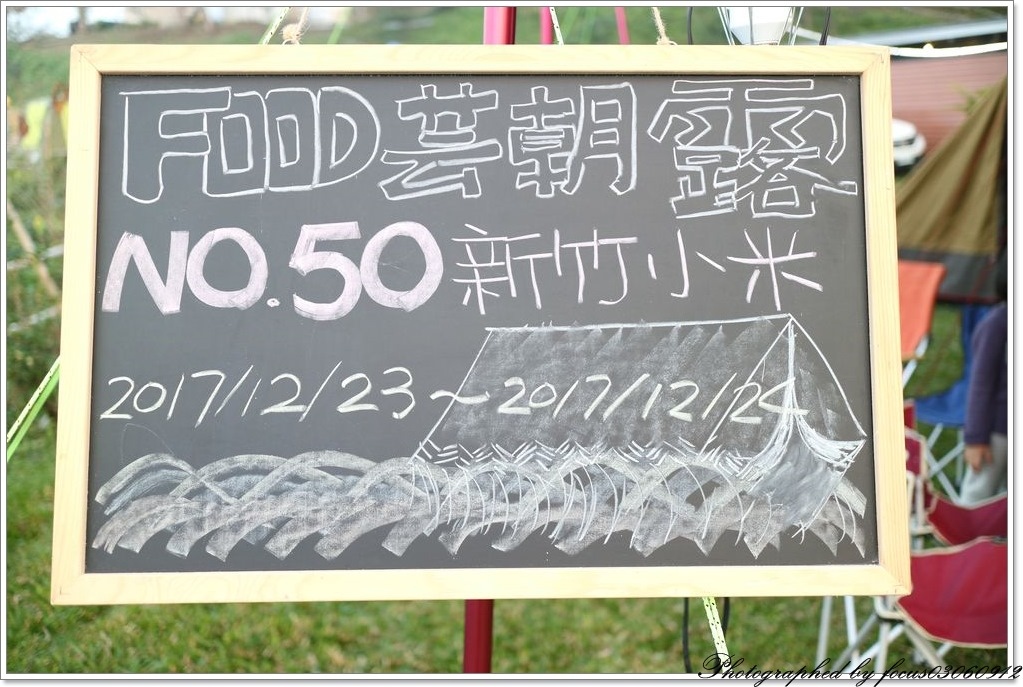 FOOD芸朝露
NO.50 新竹小米
2017/12/23~2017/12/24
Photographed by focus03060912